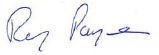 Roy Payne